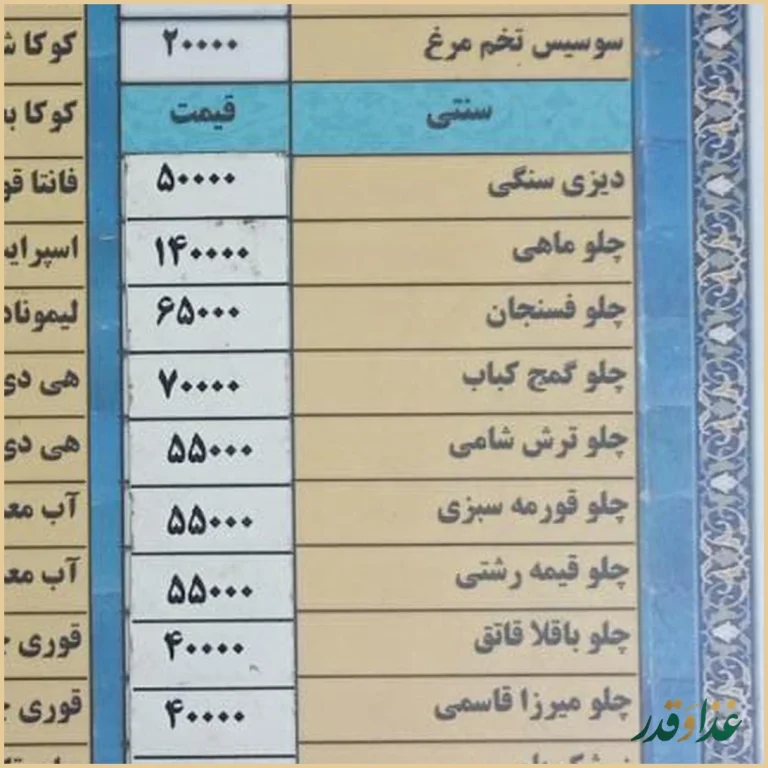 سوسیس تخم مرغ ۲۰۰۰۰ کوکا
سنتی قیمت کوکا
دیزی سنگی ۵۰۰۰۰ فانتا
چلو ماهی ۱۴۰۰۰۰
چلو فسنجان ۶۵۰۰۰
چلو گمج کباب ۷۰۰۰۰ هی دی
چلو ترش شامی ۵۵۰۰۰ هی دی
چلو قورمه سبزی ۵۵۰۰۰ آب
چلو قیمه رشتی ۵۵۰۰۰ آب
چلو باقلا قاتق ۴۰۰۰۰ قوری
چلو میرزا قاسمی ۴۰۰۰۰ قوری
غذا و قدر